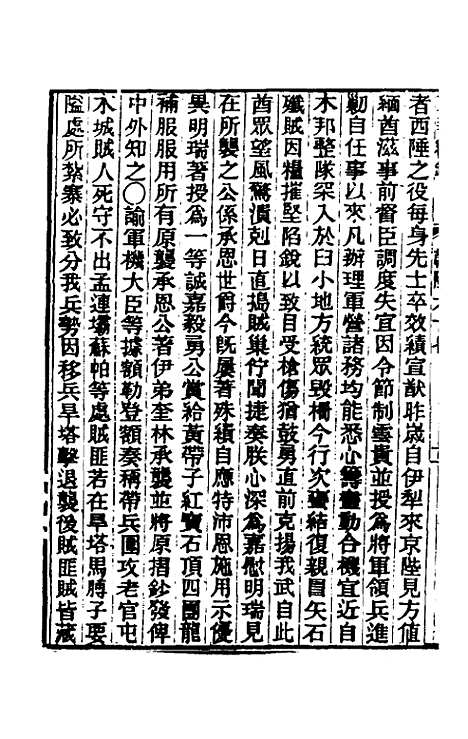 者西陲之役每身先士卒效績宣猷昨歲自伊犁來京陛見方值
緬酋滋事前督臣調度失宜因令節制雲貴並授為將軍領兵進
勦自任事以來凡辦理軍營諸務均能悉心籌畫動合機宜近自
木邦整隊深入於臼小地方統眾毀柵今行次蠻結復親冒矢石
殲賊因糧摧堅陷銳以致目受槍傷猶鼓勇直前克揚我武自此
酋眾望風驚潰剋日直搗賊巢佇聞捷奏朕心深為嘉慰明瑞見
在所襲之公係承恩世爵今既屢著殊績自應特沛恩施用示優
異明瑞著授為一等誠嘉毅勇公賞給黃帶子紅寶石頂四團龍
補服服用所有原襲承恩公著伊弟奎林承襲並將原摺鈔發俾
中外知之○諭軍機大臣等據額勒登額奏稱帶兵圍攻老官屯
木城賊人死守不出孟連壩蘇帕等處賊匪若在旱塔馬膊子要
隘處所紮寨必致分我兵勢因移兵旱塔擊退襲後賊匪賊皆藏